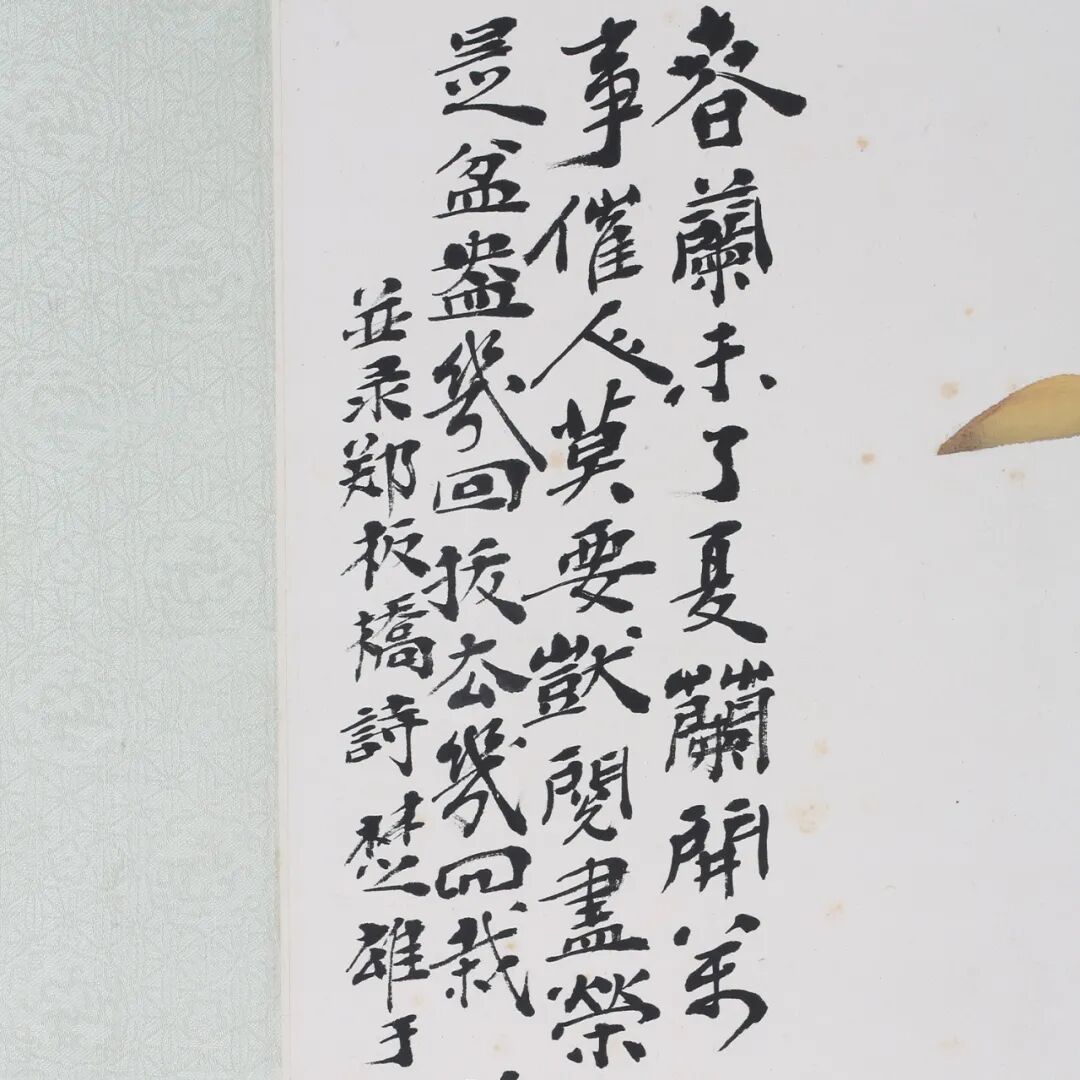 春蘭未了夏蘭開萬
事催人莫要獃閱盡榮
是盆盎幾回拔去幾回栽
並录郑板橋詩楚雄于